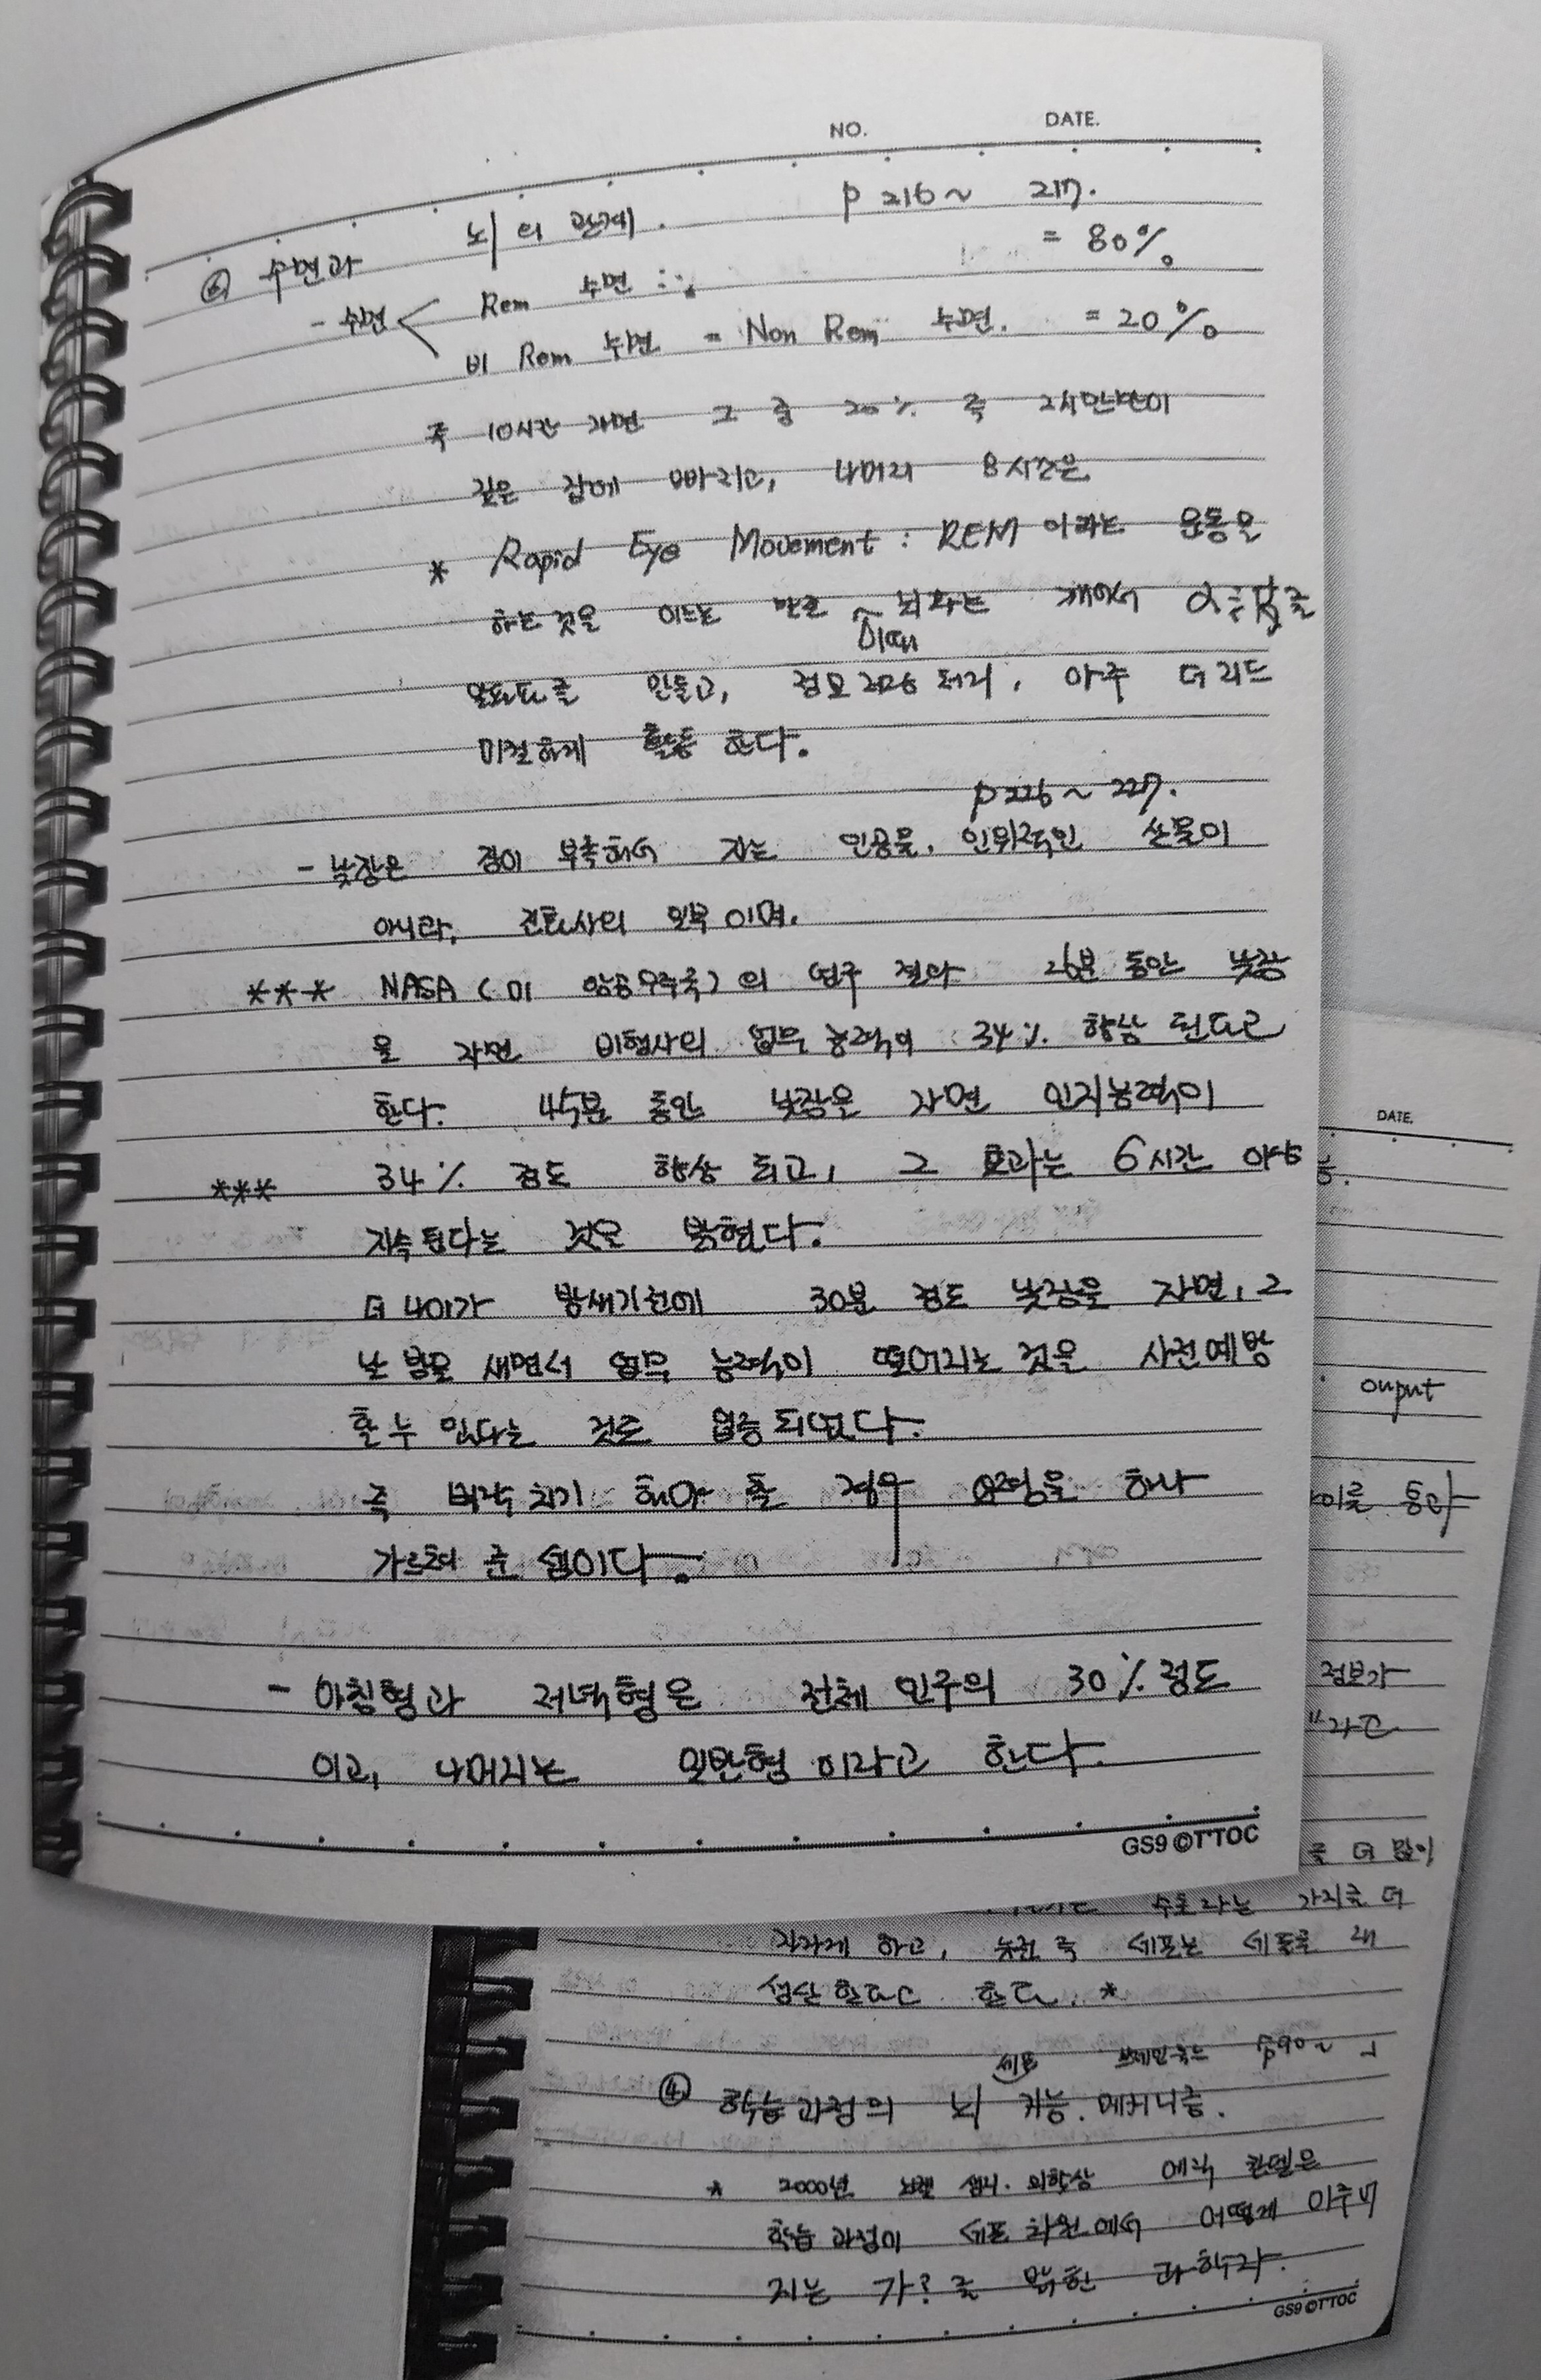 NO. DATE.
⑥ 수면과 뇌의 관계. p 216~ 217.
- 수면 < Rem 수면 = 80%
비 Rem 수면 = Non Rem 수면. = 20%
즉 10시간 자면 그 중 20% 즉 2시간만이
깊은 잠에 빠지고, 나머지 8시간은
* Rapid Eye Movement : REM 이라는 운동을
하는 것을 이때 뇌파는 깨어서
만들고, 정보 처리, 아주
하게 활동 한다.
p226~ 227.
- 낮잠은 잠이 부족해서 자는 인위적인 산물이
아니라, 의 일부 이며.
*** NASA (미 항공우주국)의 연구 결과 26분 동안 낮잠
을 자면 비행사의 업무 능력이 34% 향상 된다고
한다. 45분 동안 낮잠을 자면 인지능력이
*** 34% 정도 향상 되고, 그 효과는 6시간 이상
지속된다는 것을 밝혔다.
더 나아가 밤새기전에 30분 정도 낮잠을 자면, 그
날 밤을 새면서 업무 능력이 떨어지는 것을 사전예방
할 수 있다는 것도 입증되었다.
즉 벼락치기 해야 할 경우 요령을 하나
가르쳐 준 셈이다.
- 아침형과 저녁형은 전체 인구의 30% 정도
이고, 나머지는 일반형 이라고 한다.
GS9 ©TTOC
DATE.
ouput
이를 통해
정보가
라고
를 더 많이
수초라는 가지를 더
하고, 뉴런 즉 세포는 세포를 재
생산 한다고 한다. *
세포 p90~
④ 학습과정의 뇌 기능. 메커니즘.
* 2000년 노벨 생리. 의학상 에릭 칸델은
학습 과정이 세포 차원에서 어떻게 이루어
지는 가? 를 밝힌 과학자.
GS9 ©TTOC